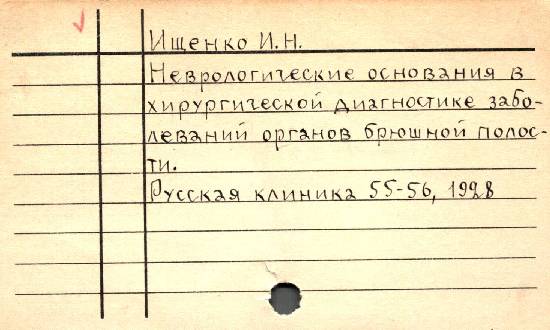 Ищенко И.Н.
Неврологические основания в
хирургической диагностике забо-
леваний органов брюшной полос-
ти.
Русская клиника 55-56, 1928